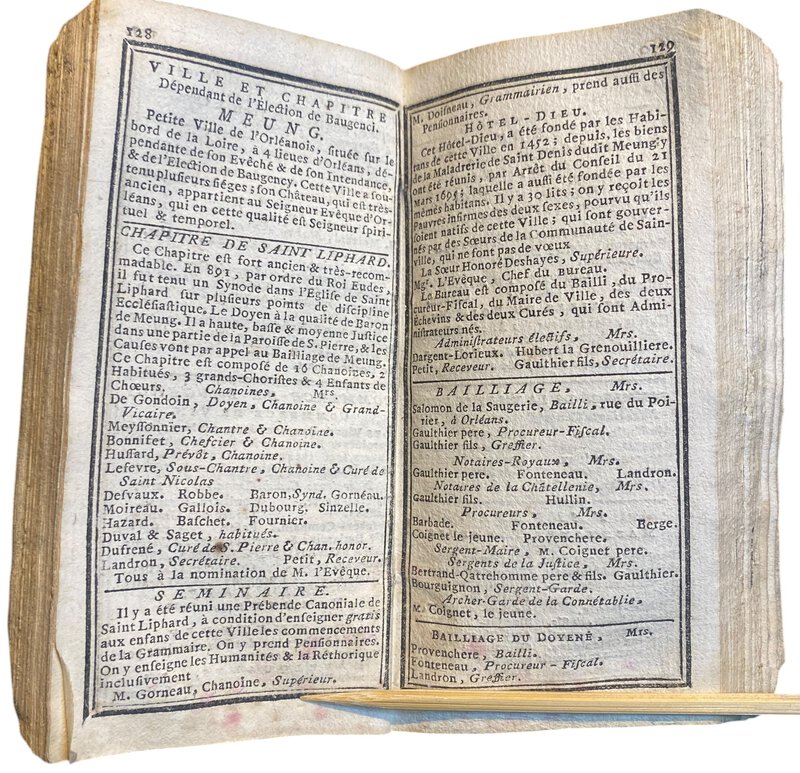 128
VILLE ET CHAPITRE
Dépendant de l'Élection de Baugenci.
MEUNG.
Petite Ville de l'Orléanois, située sur le
bord de la Loire, à 4 lieues d'Orléans, dé-
pendante de son Evêché & de son Intendance,
& de l'Election de Baugency. Cette Ville a sou-
tenu plusieurs siéges; son Château, qui est très-
ancien, appartient au Seigneur Evêque d'Or-
léans, qui en cette qualité est Seigneur spiri-
tuel & temporel.
CHAPITRE DE SAINT LIPHARD.
Ce Chapitre est fort ancien & très-recom-
madable. En 891, par ordre du Roi Eudes,
il fut tenu un Synode dans l'Eglise de Saint
Liphard sur plusieurs points de discipline
Ecclésiastique. Le Doyen à la qualité de Baron
de Meung. Il a haute, basse & moyenne Justice
dans une partie de la Paroisse de S. Pierre, & les
Causes vont par appel au Bailliage de Meung.
Ce Chapitre est composé de 16 Chanoines, 2
Habitués, 3 grands-Choristes & 4 Enfans de
Chœurs. Chanoines, Mrs
De Gondoin, Doyen, Chanoine & Grand-
Vicaire.
Meyssonnier, Chantre & Chanoine.
Bonnifet, Chefcier & Chanoine.
Hussard, Prévôt, Chanoine.
Lefevre, Sous-Chantre, Chanoine & Curé de
Saint Nicolas
Desvaux. Robbe. Baron, Synd. Gorneau.
Moireau. Gallois. Dubourg. Sinzelle.
Hazard. Baschet. Fournier.
Duval & Saget, habitués.
Dufrené, Curé de S. Pierre & Chan. honor.
Landron, Secrétaire. Petit, Receveur.
Tous à la nomination de M. l'Evêque.
SEMINAIRE.
Il y a été réuni une Prébende Canoniale de
Saint Liphard, à condition d'enseigner gratis
aux enfans de cette Ville les commencements
de la Grammaire. On y prend Pensionnaires.
On y enseigne les Humanités & la Réthorique
inclusivement
M. Gorneau, Chanoine, Supérieur.
129
M. Doisneau, Grammairien, prend aussi des
Pensionnaires.
HÔTEL-DIEU.
Cet Hôtel-Dieu, a été fondé par les Habi-
tans de cette Ville en 1452; depuis, les biens
de la Maladrerie de Saint Denis dudit Meung, y
ont été réunis, par Arrêt du Conseil du 21
Mars 1695; laquelle a aussi été fondée par les
mêmes habitans. Il y a 30 lits; on y reçoit les
Pauvres infirmes des deux sexes, pourvu qu'ils
soient natifs de cette Ville; qui sont gouver-
nés par des Sœurs de la Communauté de Sain-
ville, qui ne font pas de vœux
La Sœur Honoré Deshayes, Supérieure.
Mgr. L'Evêque, Chef du Bureau.
Le Bureau est composé du Bailli, du Pro-
cureur-Fiscal, du Maire de Ville, des deux
Echevins & des deux Curés, qui sont Admi-
nistrateurs nés.
Administrateurs électifs, Mrs.
Dargent-Lorieux. Hubert la Grenouilliere.
Petit, Receveur. Gaulthier fils, Secrétaire.
BAILLIAGE, Mrs.
Salomon de la Saugerie, Bailli, rue du Poi-
rier, à Orléans.
Gaulthier pere, Procureur-Fiscal.
Gaulthier fils, Greffier.
Notaires-Royaux, Mrs.
Gaulthier pere. Fonteneau. Landron.
Notaires de la Châtellenie, Mrs.
Gaulthier fils. Hullin.
Procureurs, Mrs.
Barbade. Fonteneau. Berge.
Coignet le jeune. Provenchere.
Sergent-Maire, M. Coignet pere.
Sergents de la Justice, Mrs.
Bertrand-Qatrehomme pere & fils. Gaulthier.
Bourguignon, Sergent-Garde.
Archer-Garde de la Connétablie,
M. Coignet, le jeune.
BAILLIAGE DU DOYENÉ, Mrs.
Provenchere, Bailli.
Fonteneau, Procureur-Fiscal.
Landron, Greffier.